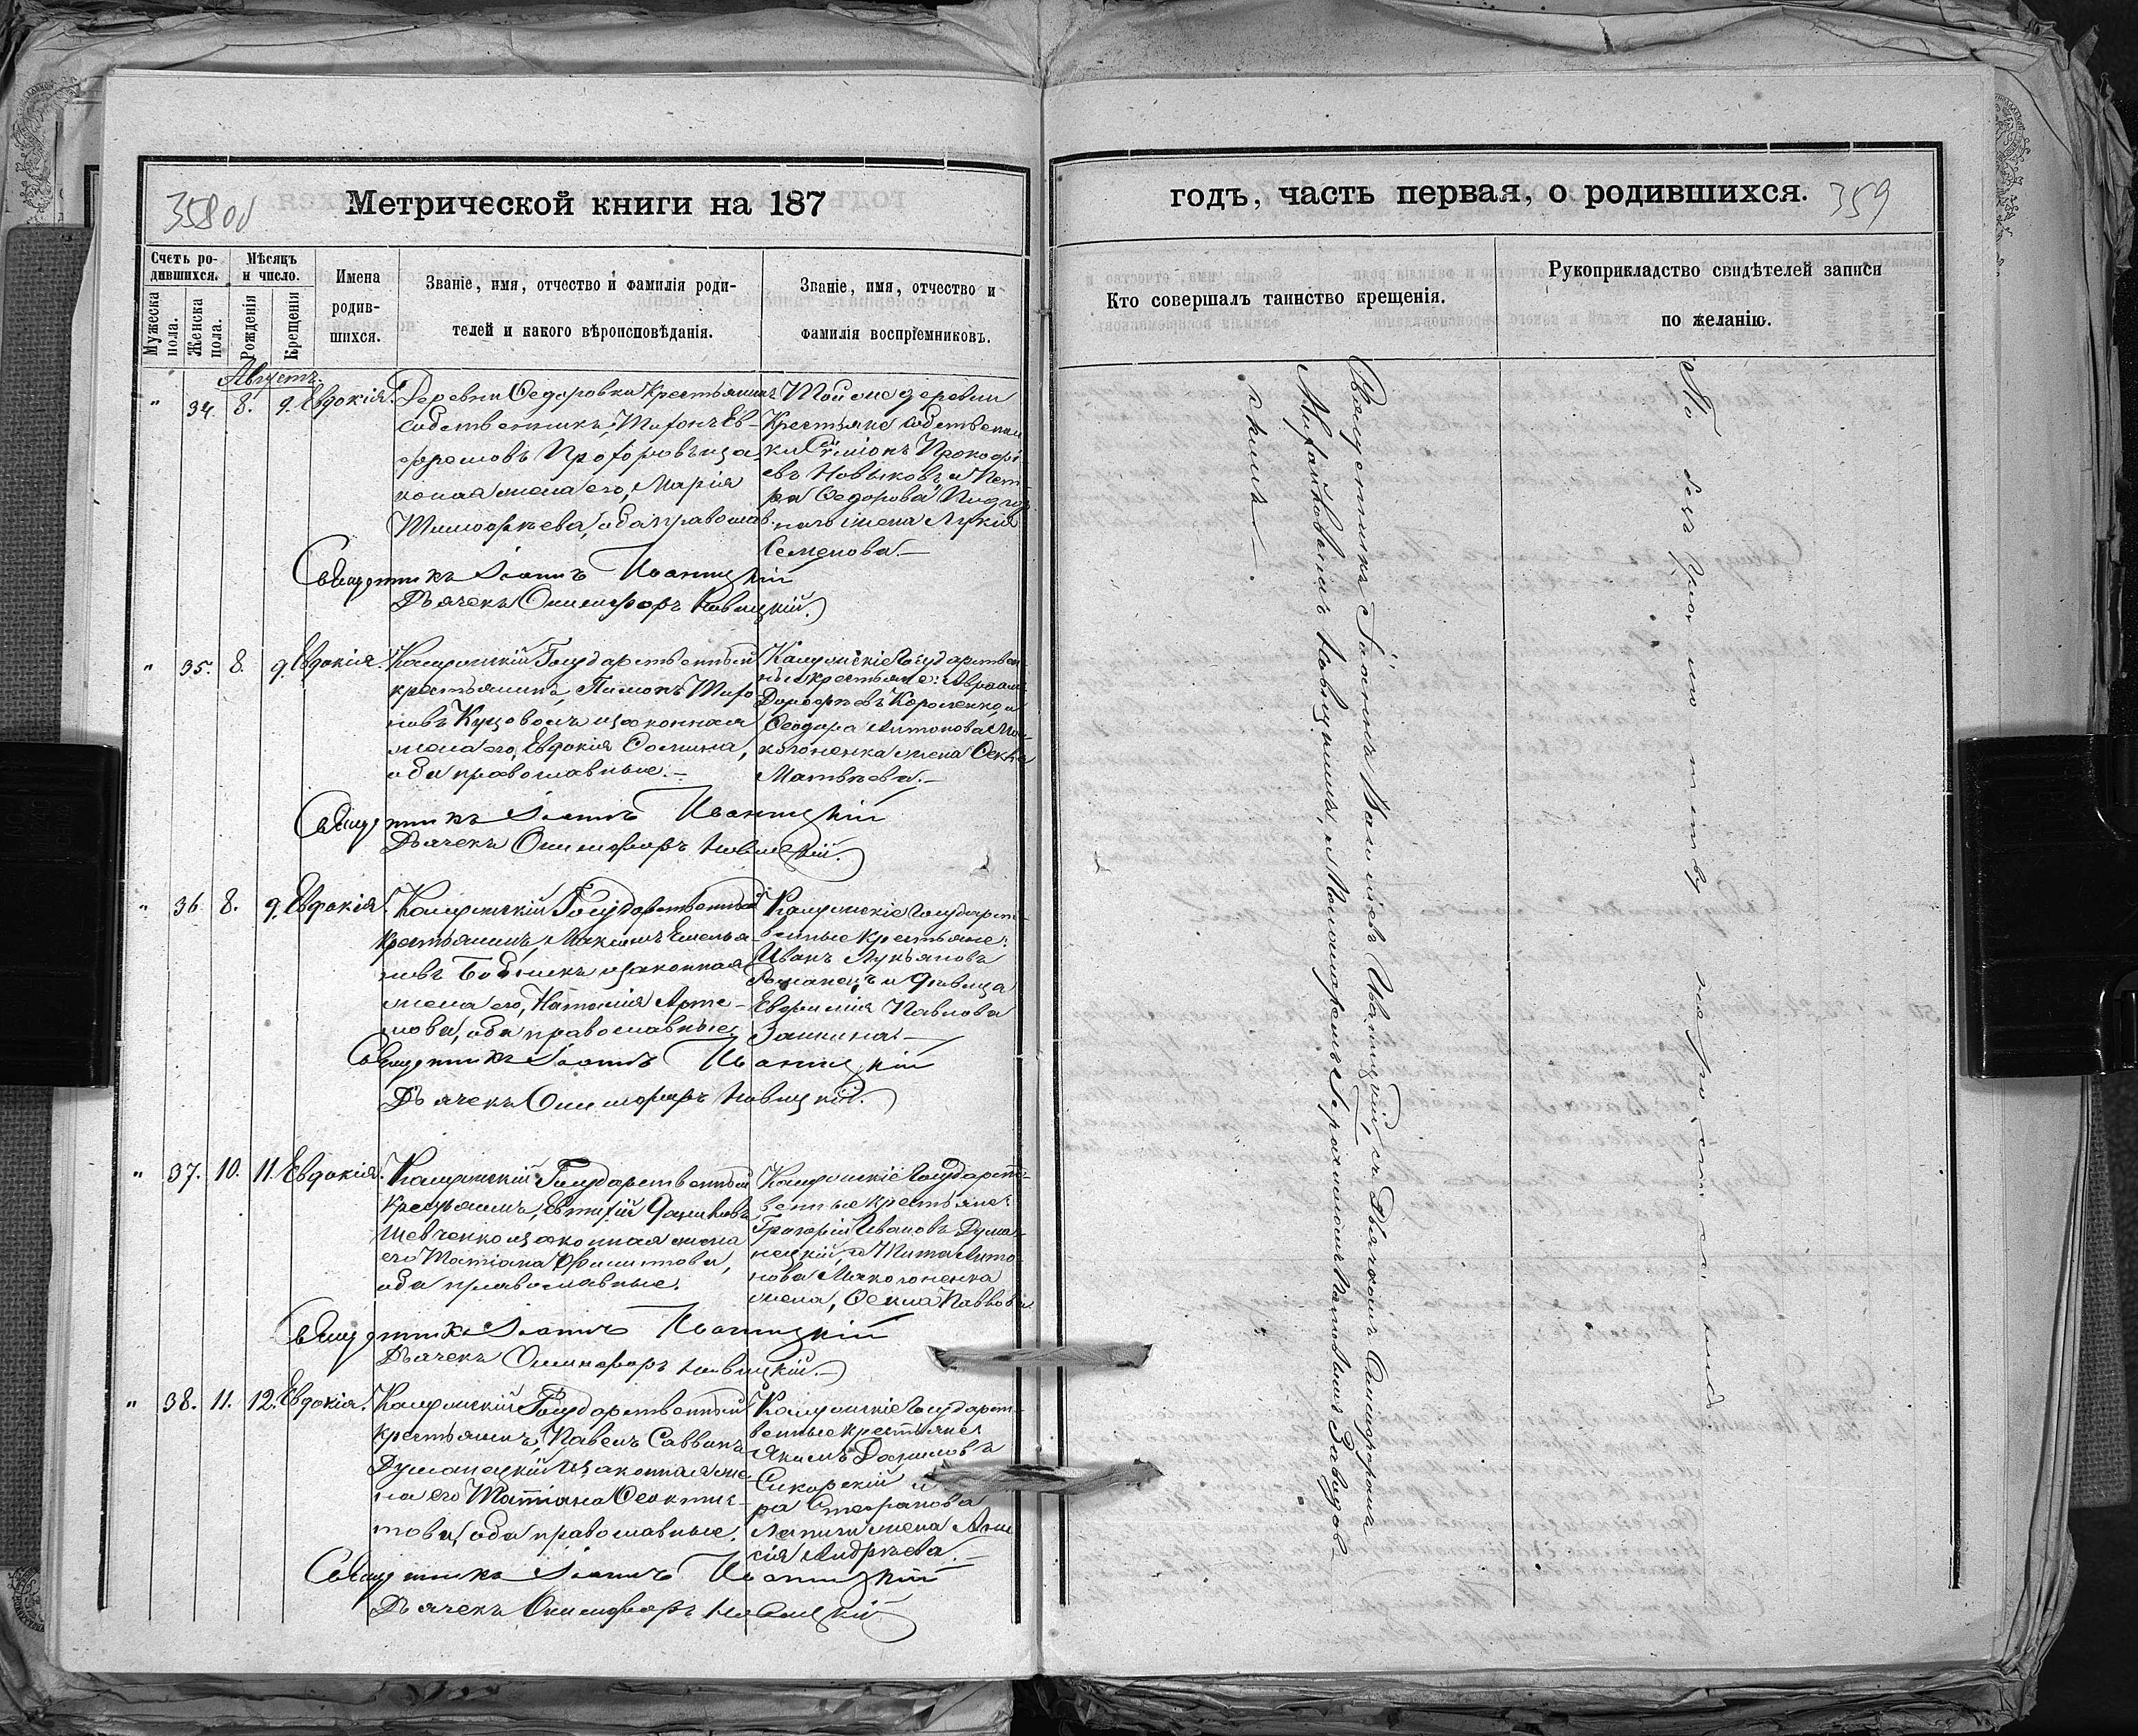 358об
Метрической книги на 187
Счетъ ро-
дившихся.
Мѣсяцъ
и число.
Мужеска
пола.
Женска
пола.
Рожденія
Крещенія
Имена
родив-
шихся.
Званіе, имя, отчество и фамилія роди-
телей и какого вѣроисповѣданія.
Званіе, имя, отчество и
фамилія воспріемниковъ.
Августъ.
" 34. 8. 9. Евдокія.
Деревни Ѳедоровки крестьянинъ
собственникъ, Тифонъ Ев-
фремовъ Прохоровъ и за-
конная жена его, Марія
Тимофѣева, оба православ.
Той же деревни
Крестьяне собственни
ки Симіонъ Прокофі
евъ Новыковъ и Пет
ра Ѳедорова
жена Лукія
Семенова.—
Священникъ Іоаннъ Иваницкій
Дьячекъ Онисифоръ Новицкій.
" 35. 8. 9. Евдокія.
Государственный
крестьянинъ, Пимонъ Тифо
новъ Куцоволъ и законная
жена его, Евдокія Ѳомина,
оба православные.—
Государствен
ные крестьяне: Авраамъ
Дороѳеевъ Короленко, и
Ѳеодора Антонова Ма-
когоненка жена Ѳекла
Матвѣева.—
Священникъ Іоаннъ Иваницкій
Дьячекъ Онисифоръ Новицкій.
" 36 8. 9. Евдокія.
Государственный
крестьянинъ, Максимъ Емелья
новъ Бобликъ и законная
жена его, Наталія Арте-
мова, оба православные,
Государст-
венные крестьяне:
Иванъ Лукьяновъ
Романецъ и дѣвица
Евфимія Павлова
Заикина.—
Священникъ Іоаннъ Иваницкій
Дьячекъ Онисифоръ Новицкій.
" 37. 10. 11. Евдокія.
Государственный
крестьянинъ, Евтихій Даниловъ
Шевченко и законная жена
его Татіана Филиппова,
оба православные.
Государст-
венные крестьяне:
Григорій Ивановъ Дума-
нецкій, и Тита Анто-
нова Макогоненка
жена, Ѳекла Павлова
Священникъ Іоаннъ Иваницкій
Дьячекъ Онисифоръ Новицкій.—
" 38. 11. 12. Евдокія.
Государственный
крестьянинъ, Павелъ Саввинъ
Думанецкій и законная же
на его Татіана Ѳеоктис-
това, оба православные.
Государст-
венные крестьяне
Якимъ Даниловъ
Сикорскій и
ра Стефанова
жена Ани
сія Андрѣева.—
Священникъ Іоаннъ Иваницкій
Дьячекъ Онисифоръ Новицкій
годъ, часть первая, о родившихся.
359
Кто совершалъ таинство крещенія.
Рукоприкладство свидѣтелей записи
по желанію.
Священникъ Іоаннъ Иваницкій, съ Дьячкомъ Онисифоромъ
Михайловымъ Новицкимъ, и Пономаремъ Заводов
скимъ.—
По безграмотству не росписались